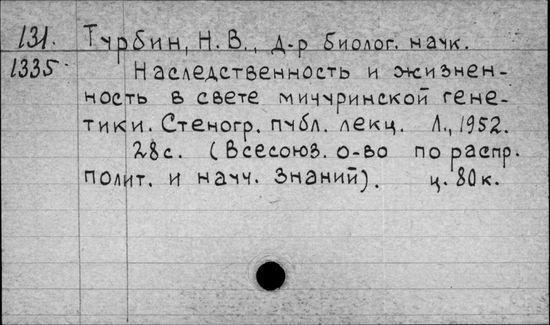 131. Турбин, Н. В., д-р биолог. наук.
1335. Наследственность и жизнен-
ность в свете мичуринской гене-
тики. Стеногр. публ. лекц. Л., 1952.
28с. (Всесоюз. о-во по распр.
полит. и науч. знаний). ц. 80к.